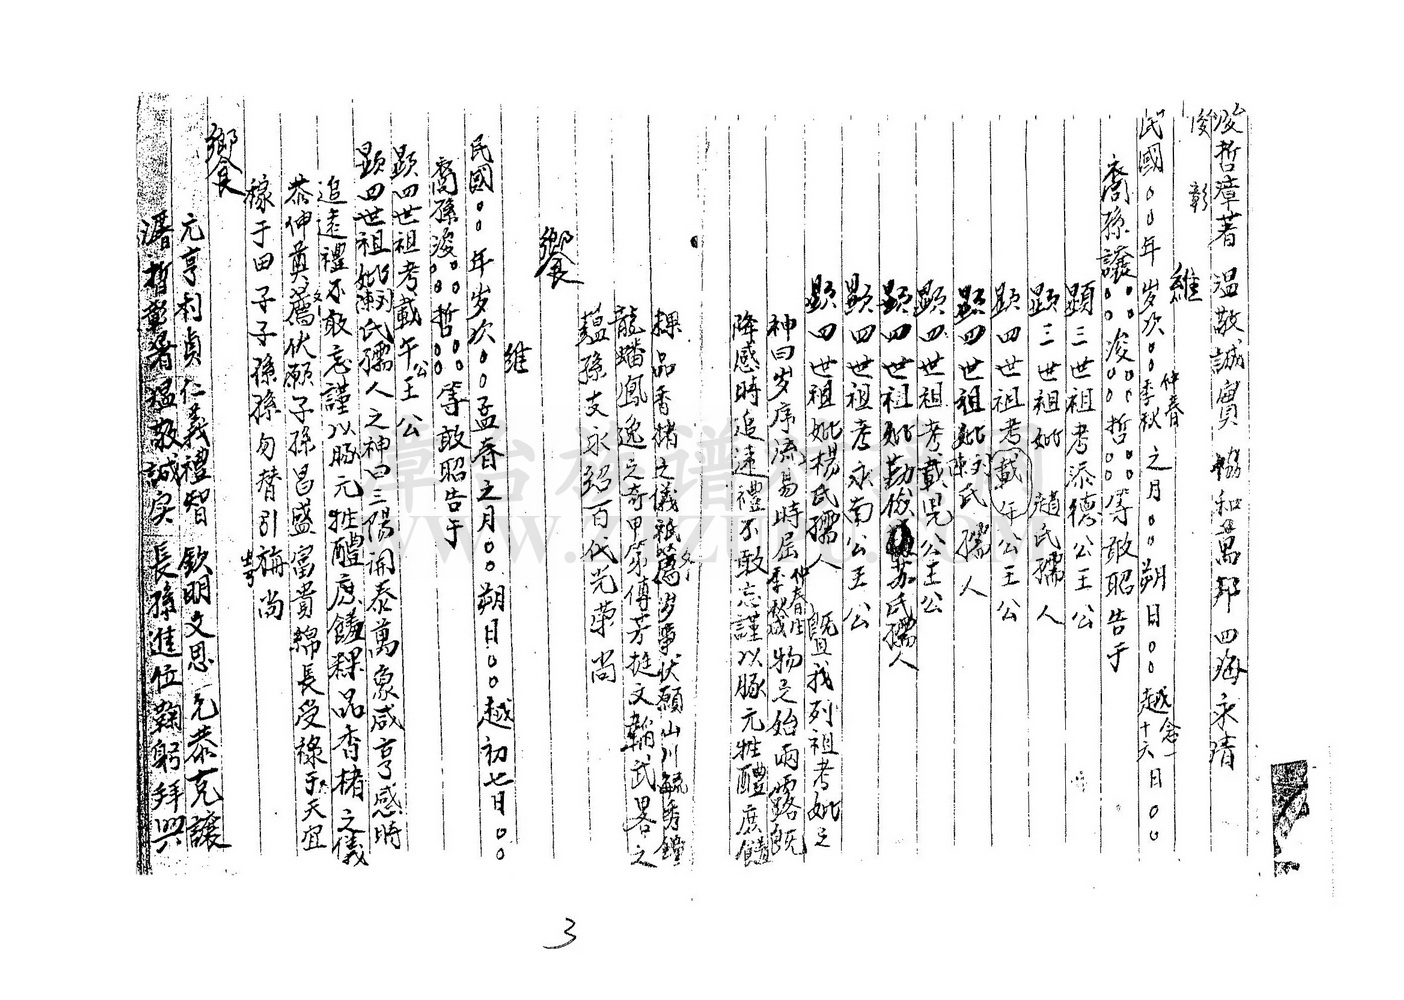 浚哲璋著 溫敬誠實 協和萬邦 四海永清
俊 彰
維
民國○○年岁次○○季秋之月○○朔日○○越十六日○○
仲春 念一
裔孫讓○○○○浚○○○○哲○○○○等敢昭告于
顯三世祖考添德公王公
顯三世祖妣趙氏孺人
顯四世祖考載午公王公
顯四世祖妣陳刘氏孺人
顯四世祖考載見公王公
顯四世祖妣勤儉蘇氏孺人
顯四世祖考永南公王公
顯四世祖妣楊氏孺人 暨我列祖考妣之
神曰岁序流易時屆季秋仲春物之始雨露既
降感時追遠禮不敢忘謹以豚元牲醴庶饈
粿品香楮之儀祇薦岁事伏願山川毓秀鐘
龍蟠鳳逸之奇甲第傳芳挺文韜武畧之
蘊孫支永紹百代光荣尚
饗
維
民國○○年岁次○○孟春之月○○朔日○○越初七日○○
裔孫浚○○○○哲○○○○等敢昭告于
顯四世祖考載午公王公
顯四世祖妣陳刘氏孺人之神曰三陽開泰萬象咸亨感時
追遠禮不敢忘謹以豚元牲醴庶饈粿品香楮之儀
恭伸奠薦伏願子孫昌盛富貴綿長受祿于天宜
稼于田子子孫孫勿替引旃尚
饗
元亨利貞仁義禮智 欽明文思 允恭克讓
濬哲彰著溫敬誠实 長孫進位鞠躬拜興
3
章台族谱
WWW.ZTZUPU.COM